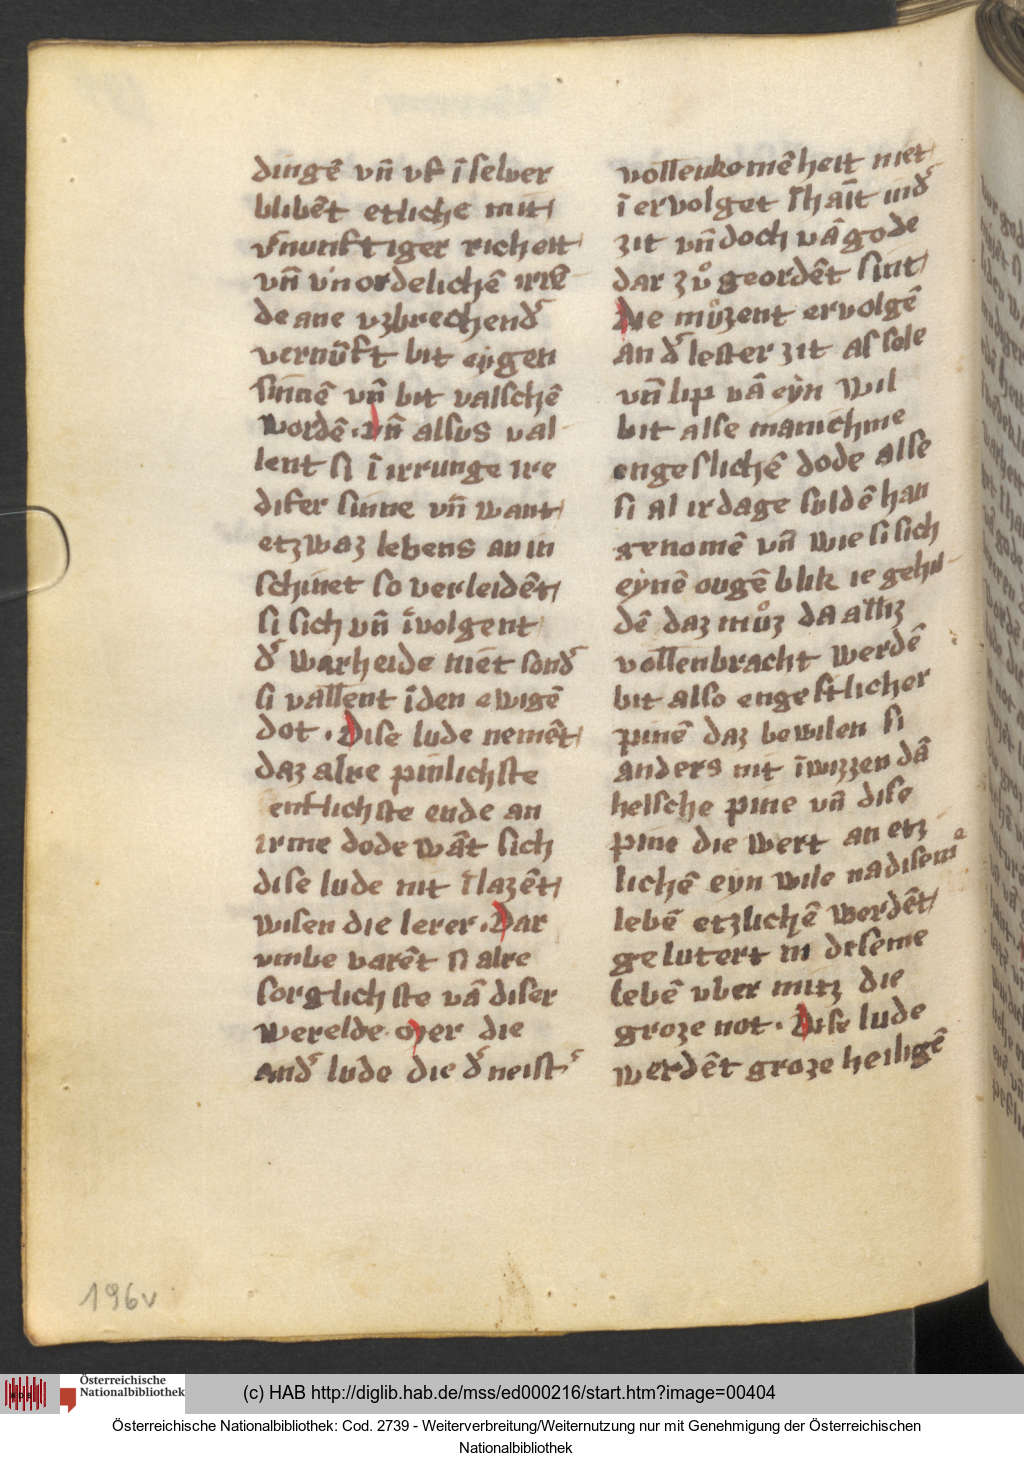 dingē vn̄ vf ī selver
blibēt etliche mit
v̄nunftiger richeit
vn̄ vn ordelichē irrē
de ane vzbrechend᷎
vernūft bit eygen
sinnē vn̄ bit valschē
wordē. vn̄ alsus val
lent si ī irrunge ire
difer sinne vn̄ want
etzwaz lebens an in
schinet so verleidēt
si sich vn̄ īvolgent
d᷎ warheide niet sond᷎
si vallent īden ewigē
dot. Dise lude nemēt
daz alre pinlichste
enklichste ende an
irme dode wāt sich
dise lude nit lazēt
wisen die lerer. Dar
vmbe varēt si alre
sorglichste vā diser
werelde. oyer die
and᷎ lude die d᷎ neist
vollenkomēheit niet
ī ervolget hāit
zit vn̄ doch vā gode
dar zů geordēt sint
Die můzent ervolgē
an d᷎ lester zit as sole
vn̄ lip vā eyn wil
bit alse manichme
engeslichē dode alse
si al ir dage soldē han
genomē vn̄ wie si sich
eynē ougē blik ie gehul
dē daz můz da allz
vollenbracht werdē
bit also engestlicher
pinē daz bewilen si
anders nit īwizzen dā
helsche pine vn̄ dise
pine die wert an etz
lichē eyn wile na disem
lebē etzlichē werdēt
gelutert in deseme
lebē vber mitz die
groze not. Dise lude
werdēt groze heiligē
196v
Österreichische
Nationalbibliothek
(c) HAB http://diglib.hab.de/mss/ed000216/start.htm?image=00404
Österreichische Nationalbibliothek: Cod. 2739 - Weiterverbreitung/Weiternutzung nur mit Genehmigung der Österreichischen
Nationalbibliothek